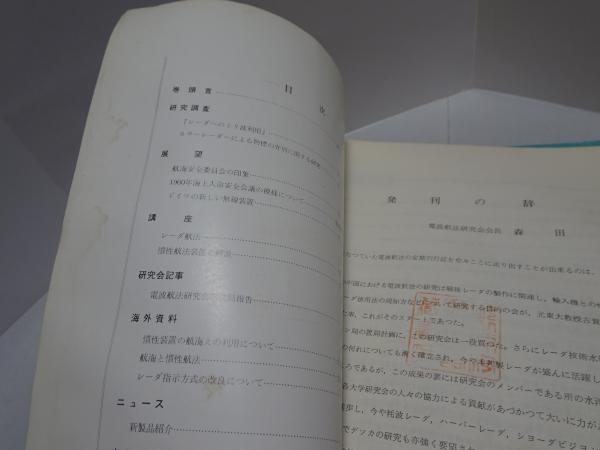 目 次
巻頭言
研究調査
『レーダへのミリ波利用』
カラーレーダーによる物標の弁別に関する研究
展 望
航海安全委員会の印象
1960年海上人命安全会議の模様について
ドイツの新しい無線装置
講 座
レーダ航法
慣性航法装置の解説
研究会記事
電波航法研究会 報告
海外資料
慣性装置の航海えの利用について
航海と慣性航法
レーダ指示方式の改良について
ニュース
新製品紹介
発刊の辞
電波航法研究会会長 森田
なつていた電波航法の定期刊行誌を皆々ここに送り出すことが出来るのは、
中国における電波航法の研究は戦後レーダの製作に関連し、輸入機との
ーダ使用法の周知方などについて研究する目的の会が、元東大教授古賀
た事、これがそのスタートであつた。
ン局の置局計画に、この研究会は一役買つた。さらにレーダ技術水
の何れについても漸く確立され、今や本邦製レーダが盛んに活躍し
ろであるが、この成果の裏には研究会のメンバーである所の水
各大学研究会の人々の協力による貢献があづかつて大いに力が
進歩し、今や粍波レーダ、ハーバーレーダ、ショーダビジョ
でデッカの研究も亦強く要望され